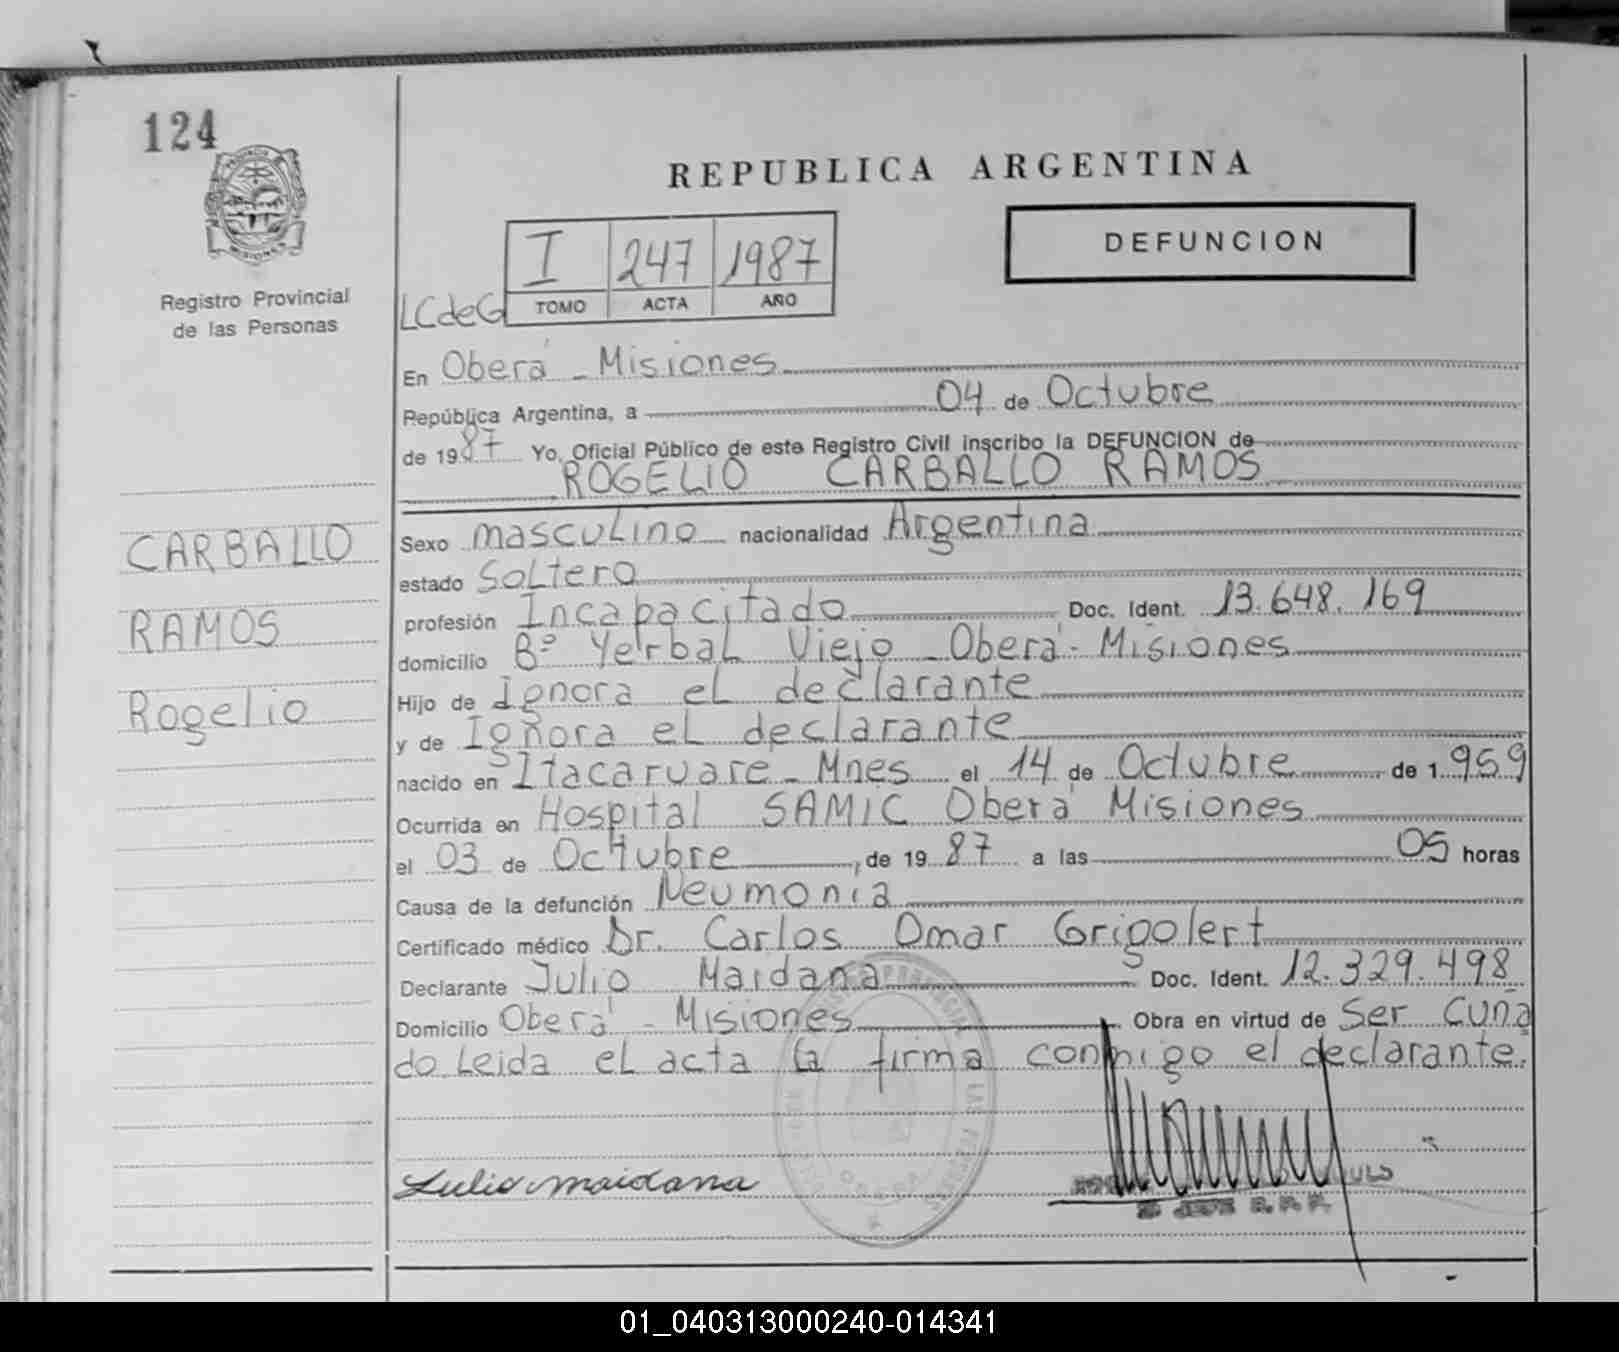 124
PROVINCIA
MISIONES
Registro Provincial
de las Personas
CARBALLO
RAMOS
Rogelio
REPUBLICA ARGENTINA
DEFUNCION
I 247 1987
TOMO ACTA AÑO
LCdeG
En Oberá - Misiones
República Argentina, a 04 de Octubre
de 1987 Yo, Oficial Público de este Registro Civil inscribo la DEFUNCION de
ROGELIO CARBALLO RAMOS
Sexo masculino nacionalidad Argentina
estado Soltero
profesión Incapacitado Doc. Ident. 13.648.169
domicilio Bº Yerbal Viejo - Oberá - Misiones
Hijo de Ignora el declarante
y de Ignora el declarante
nacido en Itacaruare - Mnes el 14 de Octubre de 1.959
Ocurrida en Hospital SAMIC Oberá Misiones
el 03 de Octubre, de 1987 a las 05 horas
Causa de la defunción Neumonia
Certificado médico Dr. Carlos Omar Grigolert
Declarante Julio Maidana Doc. Ident. 12.329.498
Domicilio Oberá - Misiones Obra en virtud de Ser Cuña
do Leida el acta la firma conmigo el declarante.
Julio maidana
JEFE R.P.P.
01_040313000240-014341